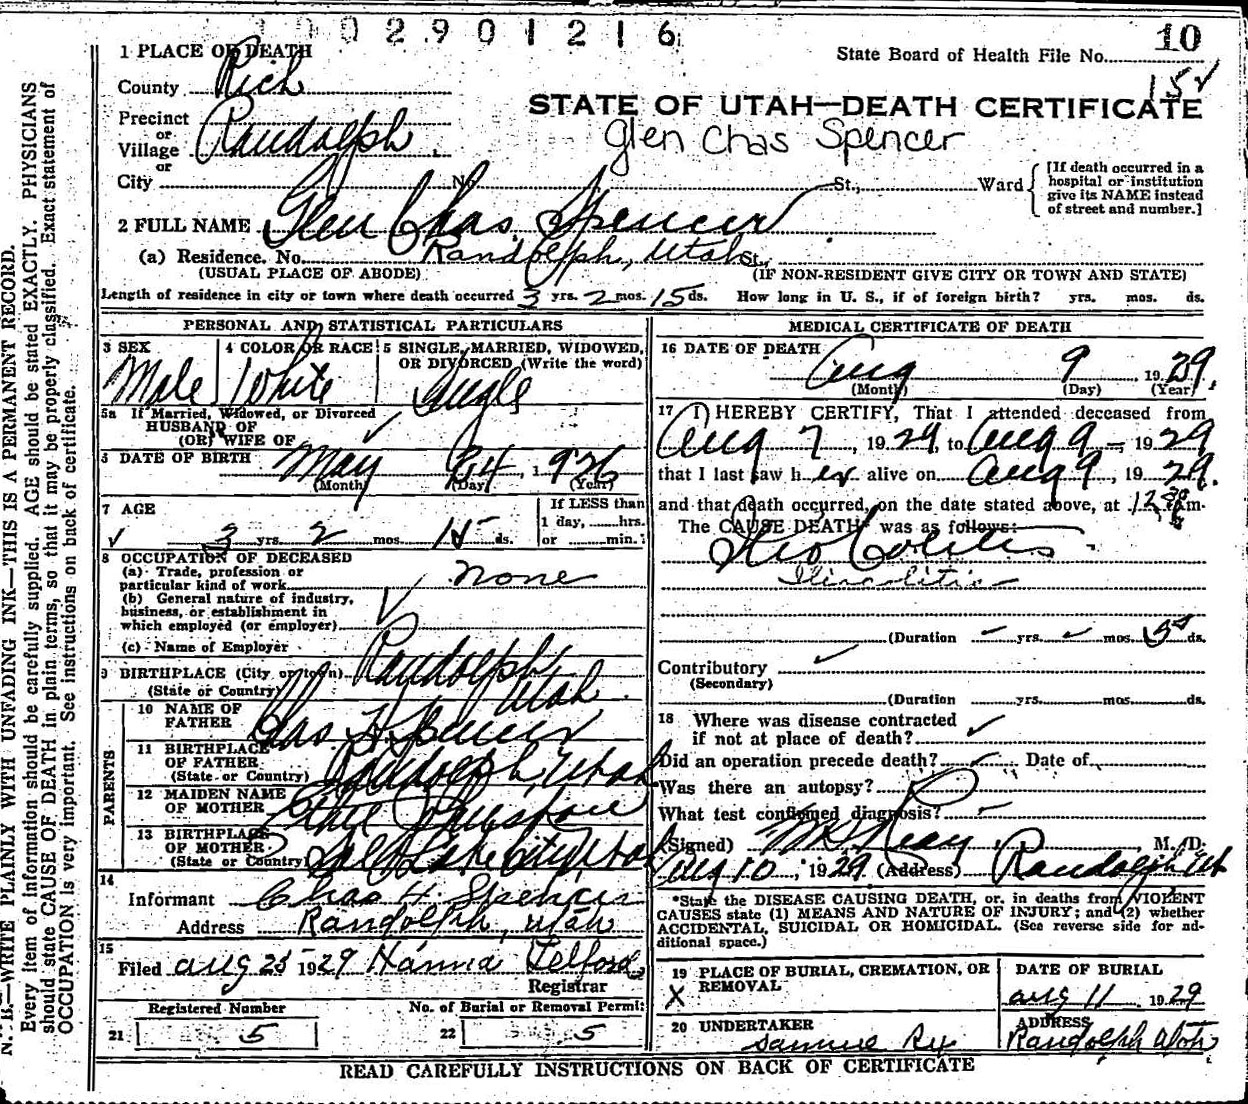 0 0 2 9 0 1 2 1 6
10
State Board of Health File No.
15
1 PLACE OF DEATH
County Rich
STATE OF UTAH—DEATH CERTIFICATE
Precinct
or
Village Randolph
Glen Chas Spencer
or
City No. St., Ward
[If death occurred in a
hospital or institution
give its NAME instead
of street and number.]
2 FULL NAME Glen Chas. Spencer
(a) Residence. No. Randolph, Utah St.,
(USUAL PLACE OF ABODE) (IF NON-RESIDENT GIVE CITY OR TOWN AND STATE)
Length of residence in city or town where death occurred 3 yrs. 2 mos. 15 ds. How long in U. S., if of foreign birth? yrs. mos. ds.
PERSONAL AND STATISTICAL PARTICULARS
3 SEX 4 COLOR OR RACE 5 SINGLE, MARRIED, WIDOWED,
OR DIVORCED (Write the word)
Male White Single
5a If Married, Widowed, or Divorced
HUSBAND OF
(OR) WIFE OF
6 DATE OF BIRTH May 24, 1926
(Month) (Day) (Year)
7 AGE
If LESS than
1 day, hrs.
or min.
3 yrs. 2 mos. 15 ds.
8 OCCUPATION OF DECEASED
(a) Trade, profession or
particular kind of work none
(b) General nature of industry,
business, or establishment in
which employed (or employer)
(c) Name of Employer
9 BIRTHPLACE (City or town) Randolph
(State or Country) Utah
PARENTS
10 NAME OF
FATHER Chas H Spencer
11 BIRTHPLACE
OF FATHER
(State or Country) Randolph, Utah
12 MAIDEN NAME
OF MOTHER
13 BIRTHPLACE
OF MOTHER
(State or Country) Salt Lake City, Utah
14
Informant Chas H. Spencer
Address Randolph, Utah
15
Filed Aug 25 1929 Hanna Telford
Registrar
Registered Number No. of Burial or Removal Permit
21 5 22 5
MEDICAL CERTIFICATE OF DEATH
16 DATE OF DEATH
Aug 9 1929.
(Month) (Day) (Year)
17 I HEREBY CERTIFY, That I attended deceased from
Aug 7, 1929, to Aug 9 - 1929
that I last saw h er alive on Aug 9, 1929.
and that death occurred, on the date stated above, at 12 30 m.
The CAUSE DEATH* was as follows:
Ileo Colitis
Ileocolitis
(Duration yrs. mos. ds.
Contributory
(Secondary)
(Duration yrs. mos. ds.
18 Where was disease contracted
if not at place of death?
Did an operation precede death? Date of
Was there an autopsy?
What test confirmed diagnosis?
(Signed) M. D.
Aug 10, 1929 (Address) Randolph Ut
*State the DISEASE CAUSING DEATH, or, in deaths from VIOLENT
CAUSES state (1) MEANS AND NATURE OF INJURY; and (2) whether
ACCIDENTAL, SUICIDAL OR HOMICIDAL. (See reverse side for ad-
ditional space.)
19 PLACE OF BURIAL, CREMATION, OR
REMOVAL
X
DATE OF BURIAL
Aug 11, 1929
20 UNDERTAKER
Samuel Rex
ADDRESS
Randolph Utah
READ CAREFULLY INSTRUCTIONS ON BACK OF CERTIFICATE
N. B.—WRITE PLAINLY WITH UNFADING INK—THIS IS A PERMANENT RECORD.
Every item of information should be carefully supplied. AGE should be stated EXACTLY. PHYSICIANS
should state CAUSE OF DEATH in plain terms, so that it may be properly classified. Exact statement of
OCCUPATION is very important. See instructions on back of certificate.